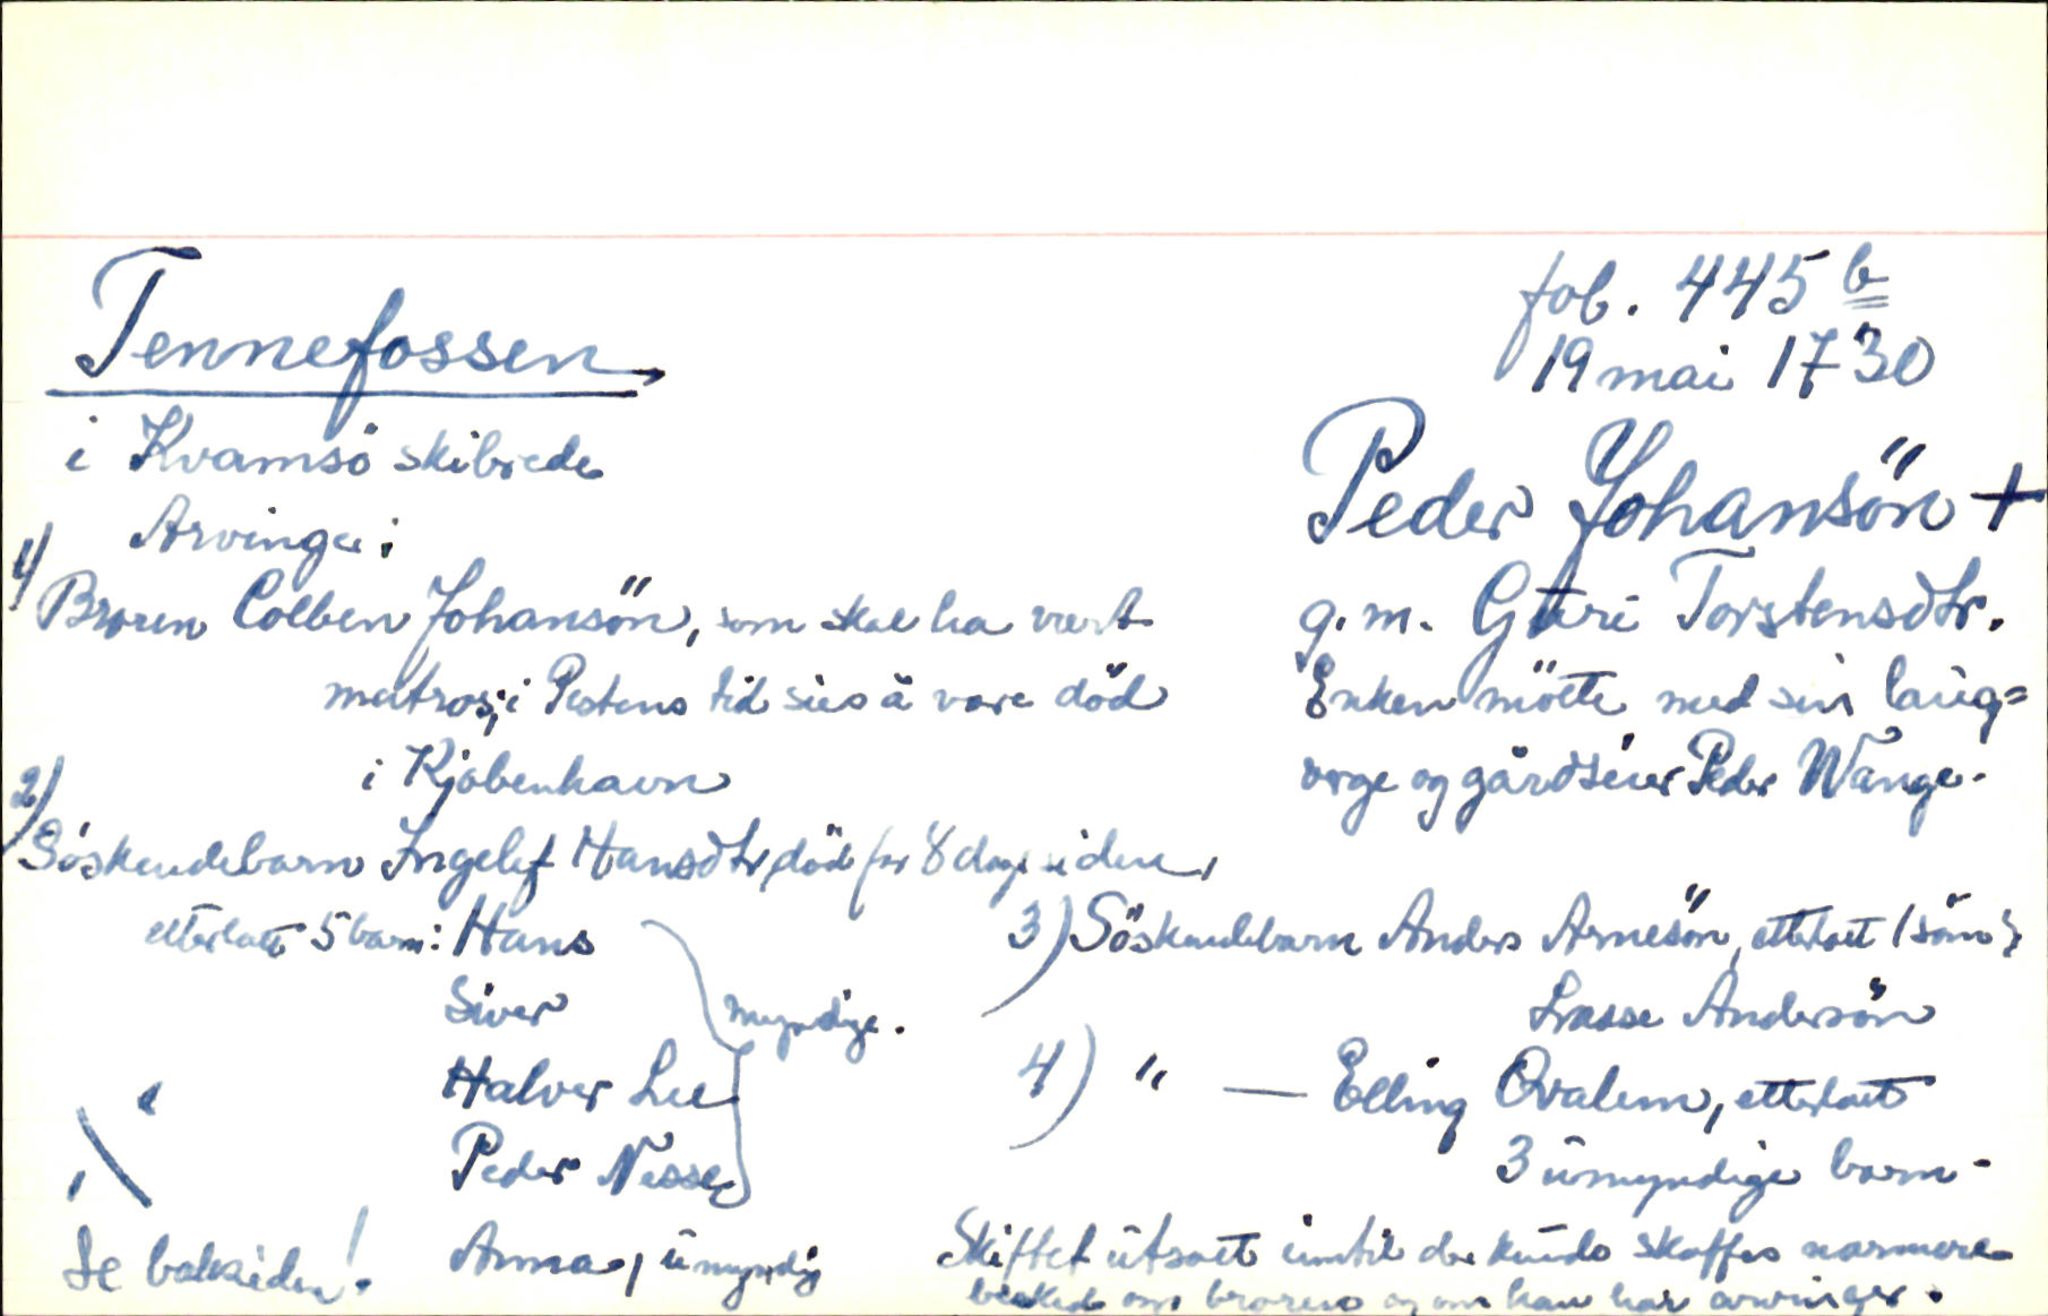 Tennefossen,
i Kvamsö skibrede
fol. 445 b
19 mai 1730
Peder Johansön +
g.m. Guri Torstensdtr.
Enken mötte med sin laug=
verge og gårdseier Peder Wange.
Arvinger:
1) Broren Colben Johansön, som skal ha vært
matros; i Pestens tid sies å være död
i Kjöbenhavn
2) Söskendebarn Ingelef Hansdtr, död for 8 dage siden,
etterlatt 5 barn: Hans
Siver
Halver Lee
Peder Nesse
myndige.
Anna, umyndig
3) Söskendebarn Anders Arnesön, etterlatt 1 sön:
Lasse Andersön
4) " — Elling Qvalem, etterlatt
3 umyndige barn-
Skiftet utsatt inntil der kunde skaffes nærmere
besked om broren og om han har arvinger.
Se baksiden!